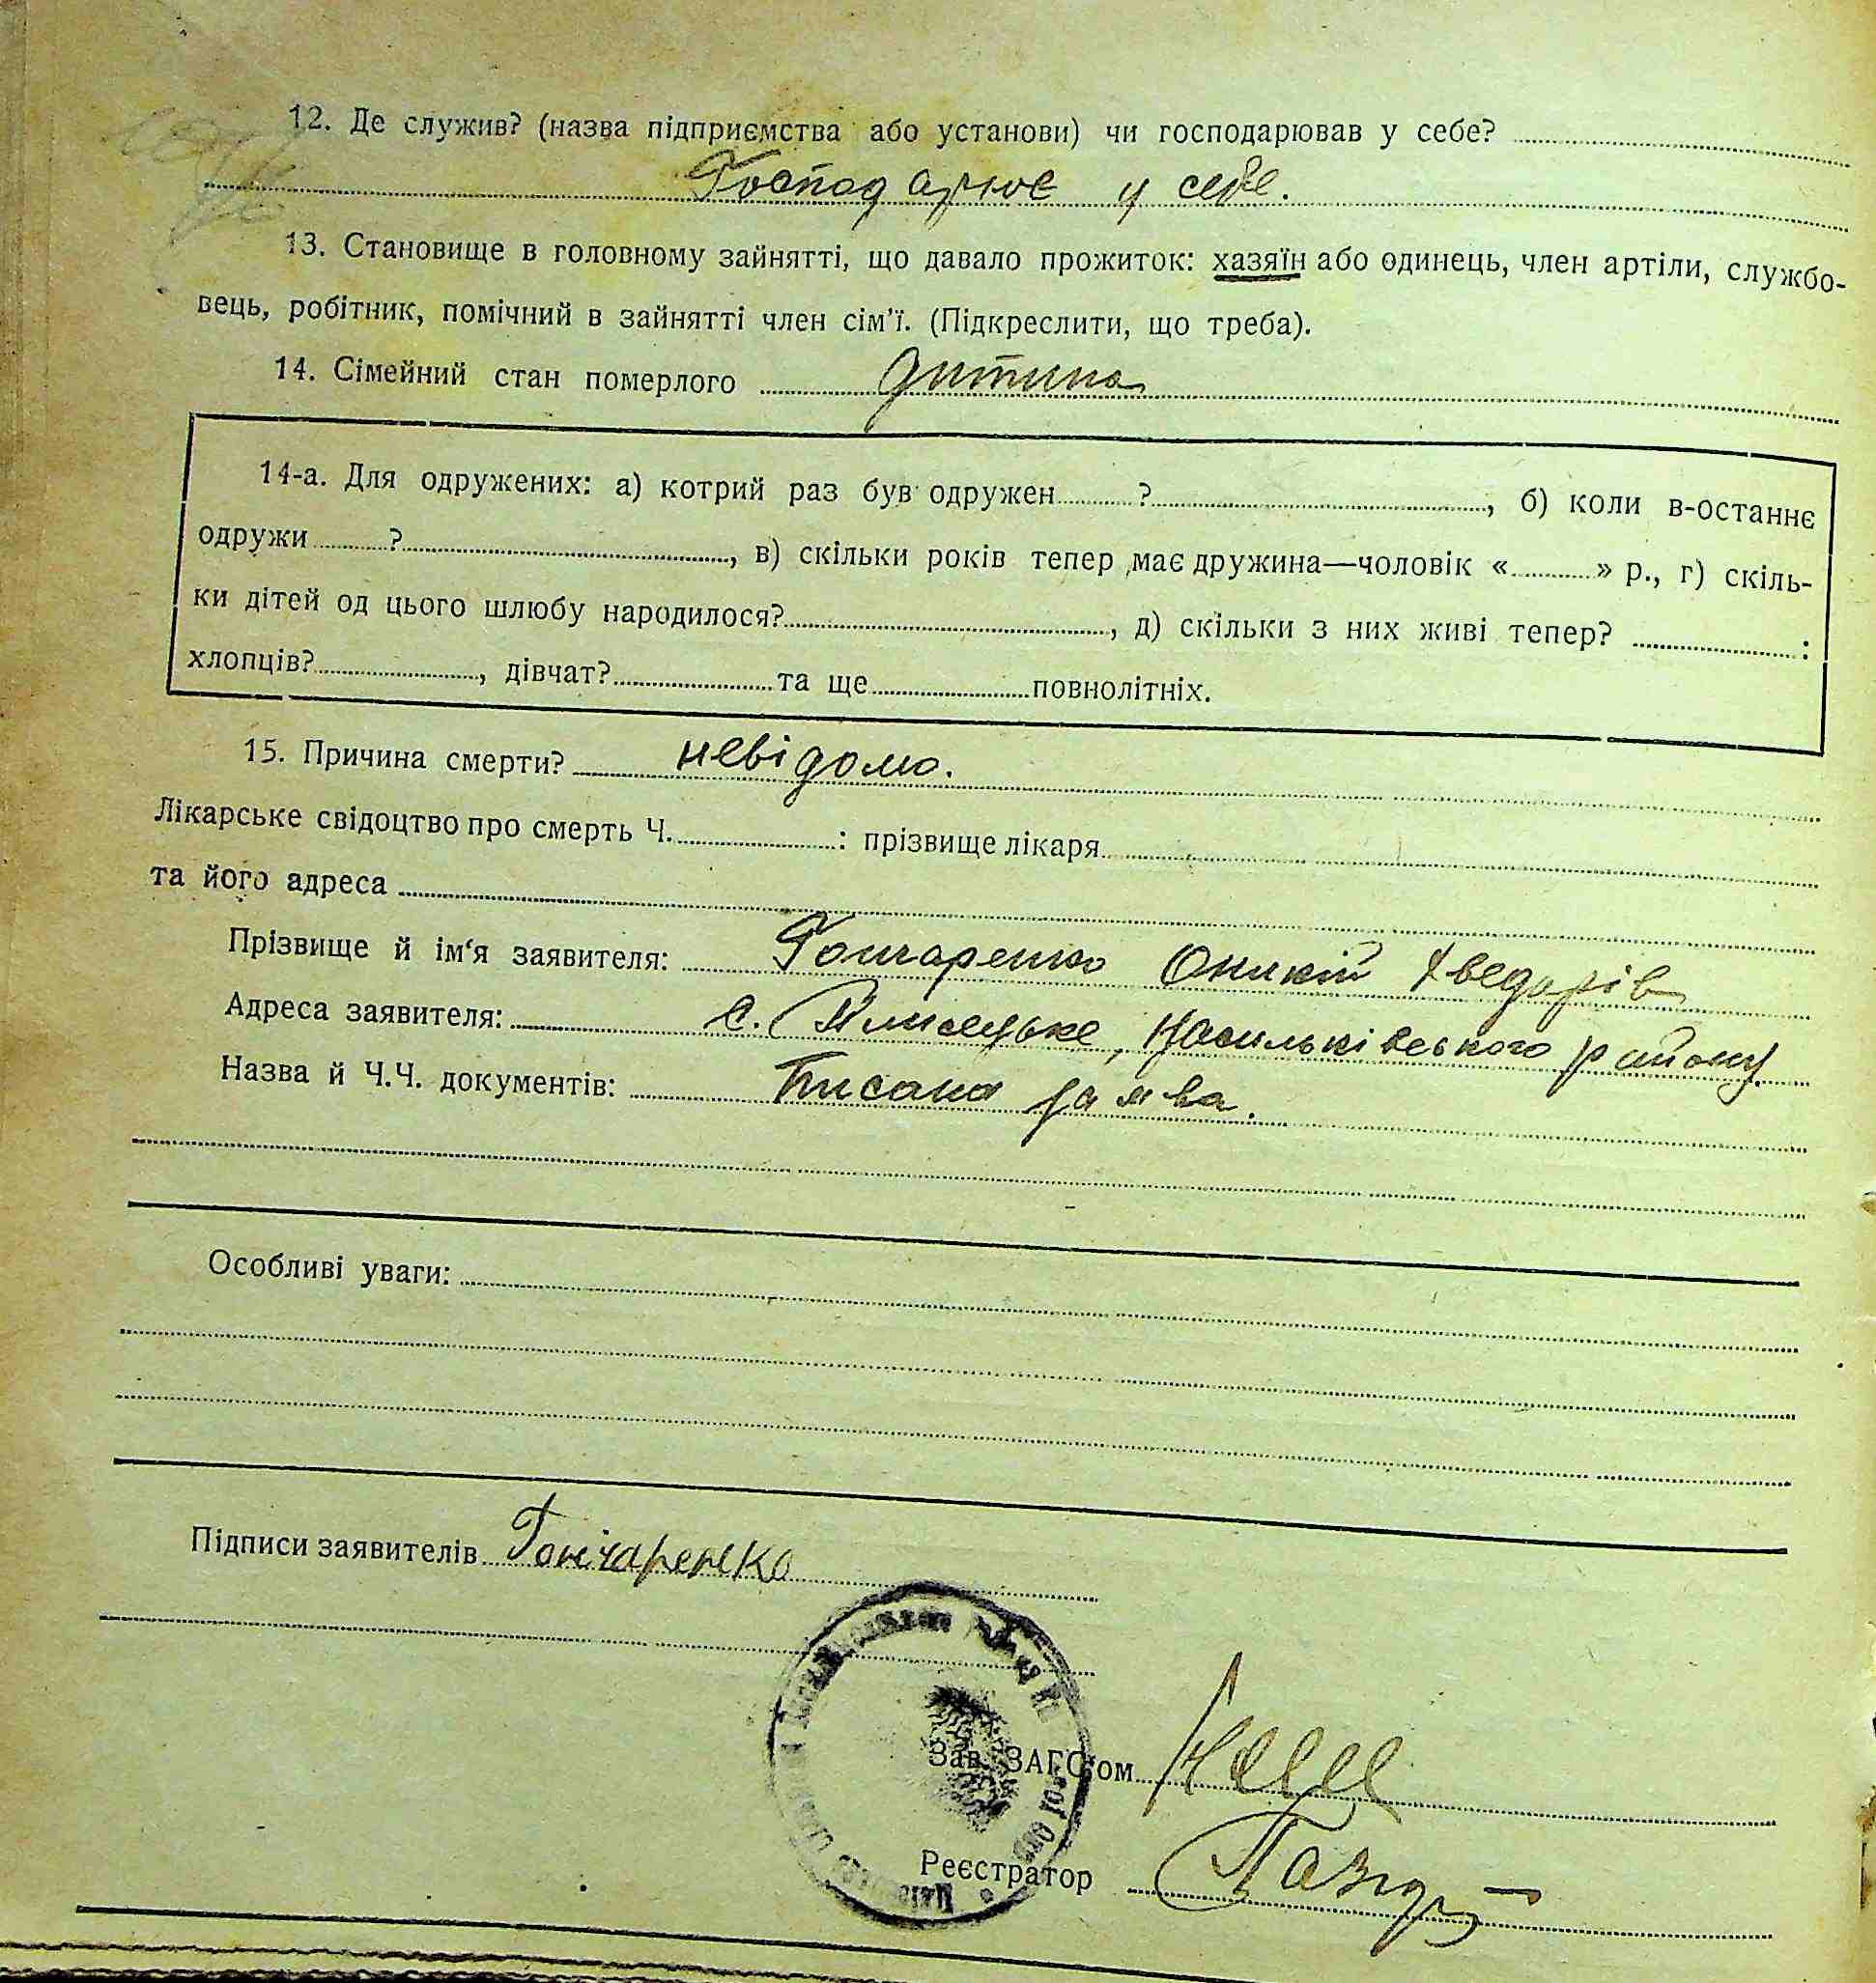 12. Де служив? (назва підприємства або установи) чи господарював у себе?
Господарює у себе.
13. Становище в головному зайнятті, що давало прожиток: хазяїн або одинець, член артіли, службо-
вець, робітник, помічний в зайнятті член сім'ї. (Підкреслити, що треба).
14. Сімейний стан померлого дитина
14-а. Для одружених: а) котрий раз був одружен ? , б) коли в-останнє
одружи ? , в) скільки років тепер має дружина—чоловік « » р., г) скіль-
ки дітей од цього шлюбу народилося? , д) скільки з них живі тепер? :
хлопців? , дівчат? та ще повнолітніх.
15. Причина смерти? невідомо.
Лікарське свідоцтво про смерть Ч. : прізвище лікаря
та його адреса
Прізвище й ім'я заявителя: Гончаренко Оникій Хведорів
Адреса заявителя: с. Плисецьке, Васильківського району
Назва й Ч.Ч. документів: Писана заява.
Особливі уваги:
Підписи заявителів Гончаренко
Зав. ЗАГС'ом
Реєстратор